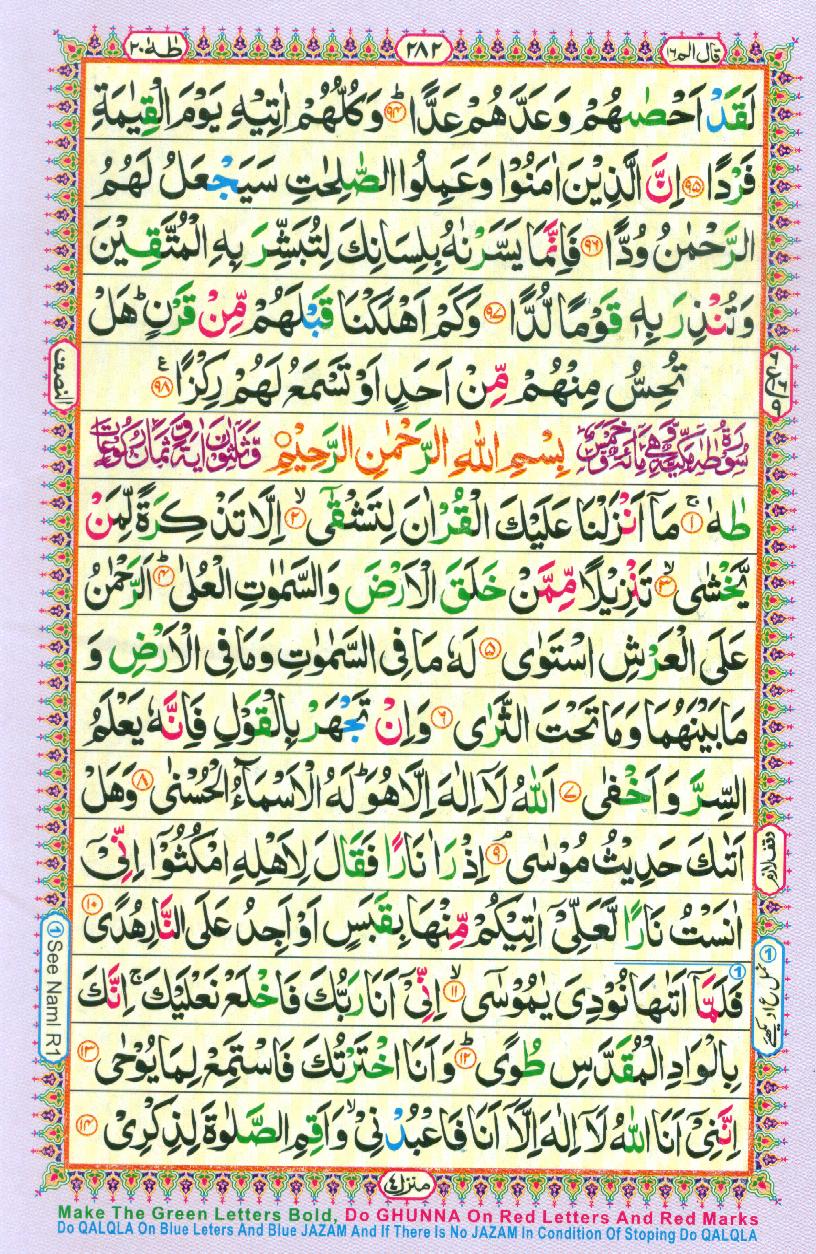 قال الم ١٦
٢٨٢
طٰهٰ ٢٠
لَقَدْ اَحْصٰىهُمْ وَعَدَّهُمْ عَدًّا ؕ﴿۹۴﴾ وَكُلُّهُمْ اٰتِيْهِ يَوْمَ الْقِيٰمَةِ
فَرْدًا ﴿۹۵﴾ اِنَّ الَّذِيْنَ اٰمَنُوْا وَعَمِلُوا الصّٰلِحٰتِ سَيَجْعَلُ لَهُمُ
الرَّحْمٰنُ وُدًّا ﴿۹۶﴾ فَاِنَّمَا يَسَّرْنٰهُ بِلِسَانِكَ لِتُبَشِّرَ بِهِ الْمُتَّقِيْنَ
وَتُنْذِرَ بِهٖ قَوْمًا لُّدًّا ﴿۹۷﴾ وَكَمْ اَهْلَكْنَا قَبْلَهُمْ مِّنْ قَرْنٍ ؕ هَلْ
تُحِسُّ مِنْهُمْ مِّنْ اَحَدٍ اَوْ تَسْمَعُ لَهُمْ رِكْزًا ﴿۹۸﴾
النصف
سُوْرَةُ طٰهٰ مَكِّيَّةٌ وَّهِيَ مِائَةٌ وَّخَمْسٌ بِسْمِ اللّٰهِ الرَّحْمٰنِ الرَّحِيْمِ وَّثَلٰثُوْنَ اٰيَةً وَّثَمَانُ رُكُوْعَاتٍ
طٰهٰ ۚ﴿۱﴾ مَاۤ اَنْزَلْنَا عَلَيْكَ الْقُرْاٰنَ لِتَشْقٰۤى ۙ﴿۲﴾ اِلَّا تَذْكِرَةً لِّمَنْ
يَّخْشٰى ۙ﴿۳﴾ تَنْزِيْلًا مِّمَّنْ خَلَقَ الْاَرْضَ وَالسَّمٰوٰتِ الْعُلٰى ؕ﴿۴﴾ اَلرَّحْمٰنُ
عَلَى الْعَرْشِ اسْتَوٰى ﴿۵﴾ لَهٗ مَا فِى السَّمٰوٰتِ وَمَا فِى الْاَرْضِ وَ
مَا بَيْنَهُمَا وَمَا تَحْتَ الثَّرٰى ﴿۶﴾ وَاِنْ تَجْهَرْ بِالْقَوْلِ فَاِنَّهٗ يَعْلَمُ
السِّرَّ وَاَخْفٰى ﴿۷﴾ اَللّٰهُ لَاۤ اِلٰهَ اِلَّا هُوَ ؕ لَهُ الْاَسْمَآءُ الْحُسْنٰى ﴿۸﴾ وَهَلْ
اَتٰىكَ حَدِيْثُ مُوْسٰى ۘ﴿۹﴾ اِذْ رَاٰ نَارًا فَقَالَ لِاَهْلِهِ امْكُثُوْۤا اِنِّىْۤ
وقف لازم
اٰنَسْتُ نَارًا لَّعَلِّىْۤ اٰتِيْكُمْ مِّنْهَا بِقَبَسٍ اَوْ اَجِدُ عَلَى النَّارِ هُدًى ﴿۱۰﴾
فَلَمَّاۤ اَتٰىهَا نُوْدِىَ يٰمُوْسٰى ؕ﴿۱۱﴾ اِنِّىْۤ اَنَا رَبُّكَ فَاخْلَعْ نَعْلَيْكَ ۚ اِنَّكَ
1 See Naml R1
بِالْوَادِ الْمُقَدَّسِ طُوًى ؕ﴿۱۲﴾ وَاَنَا اخْتَرْتُكَ فَاسْتَمِعْ لِمَا يُوْحٰى ﴿۱۳﴾
اِنَّنِىْۤ اَنَا اللّٰهُ لَاۤ اِلٰهَ اِلَّاۤ اَنَا فَاعْبُدْنِىْ ۙ وَاَقِمِ الصَّلٰوةَ لِذِكْرِىْ ﴿۱۴﴾
منزل ٤
Make The Green Letters Bold, Do GHUNNA On Red Letters And Red Marks
Do QALQLA On Blue Leters And Blue JAZAM And If There Is No JAZAM In Condition Of Stoping Do QALQLA